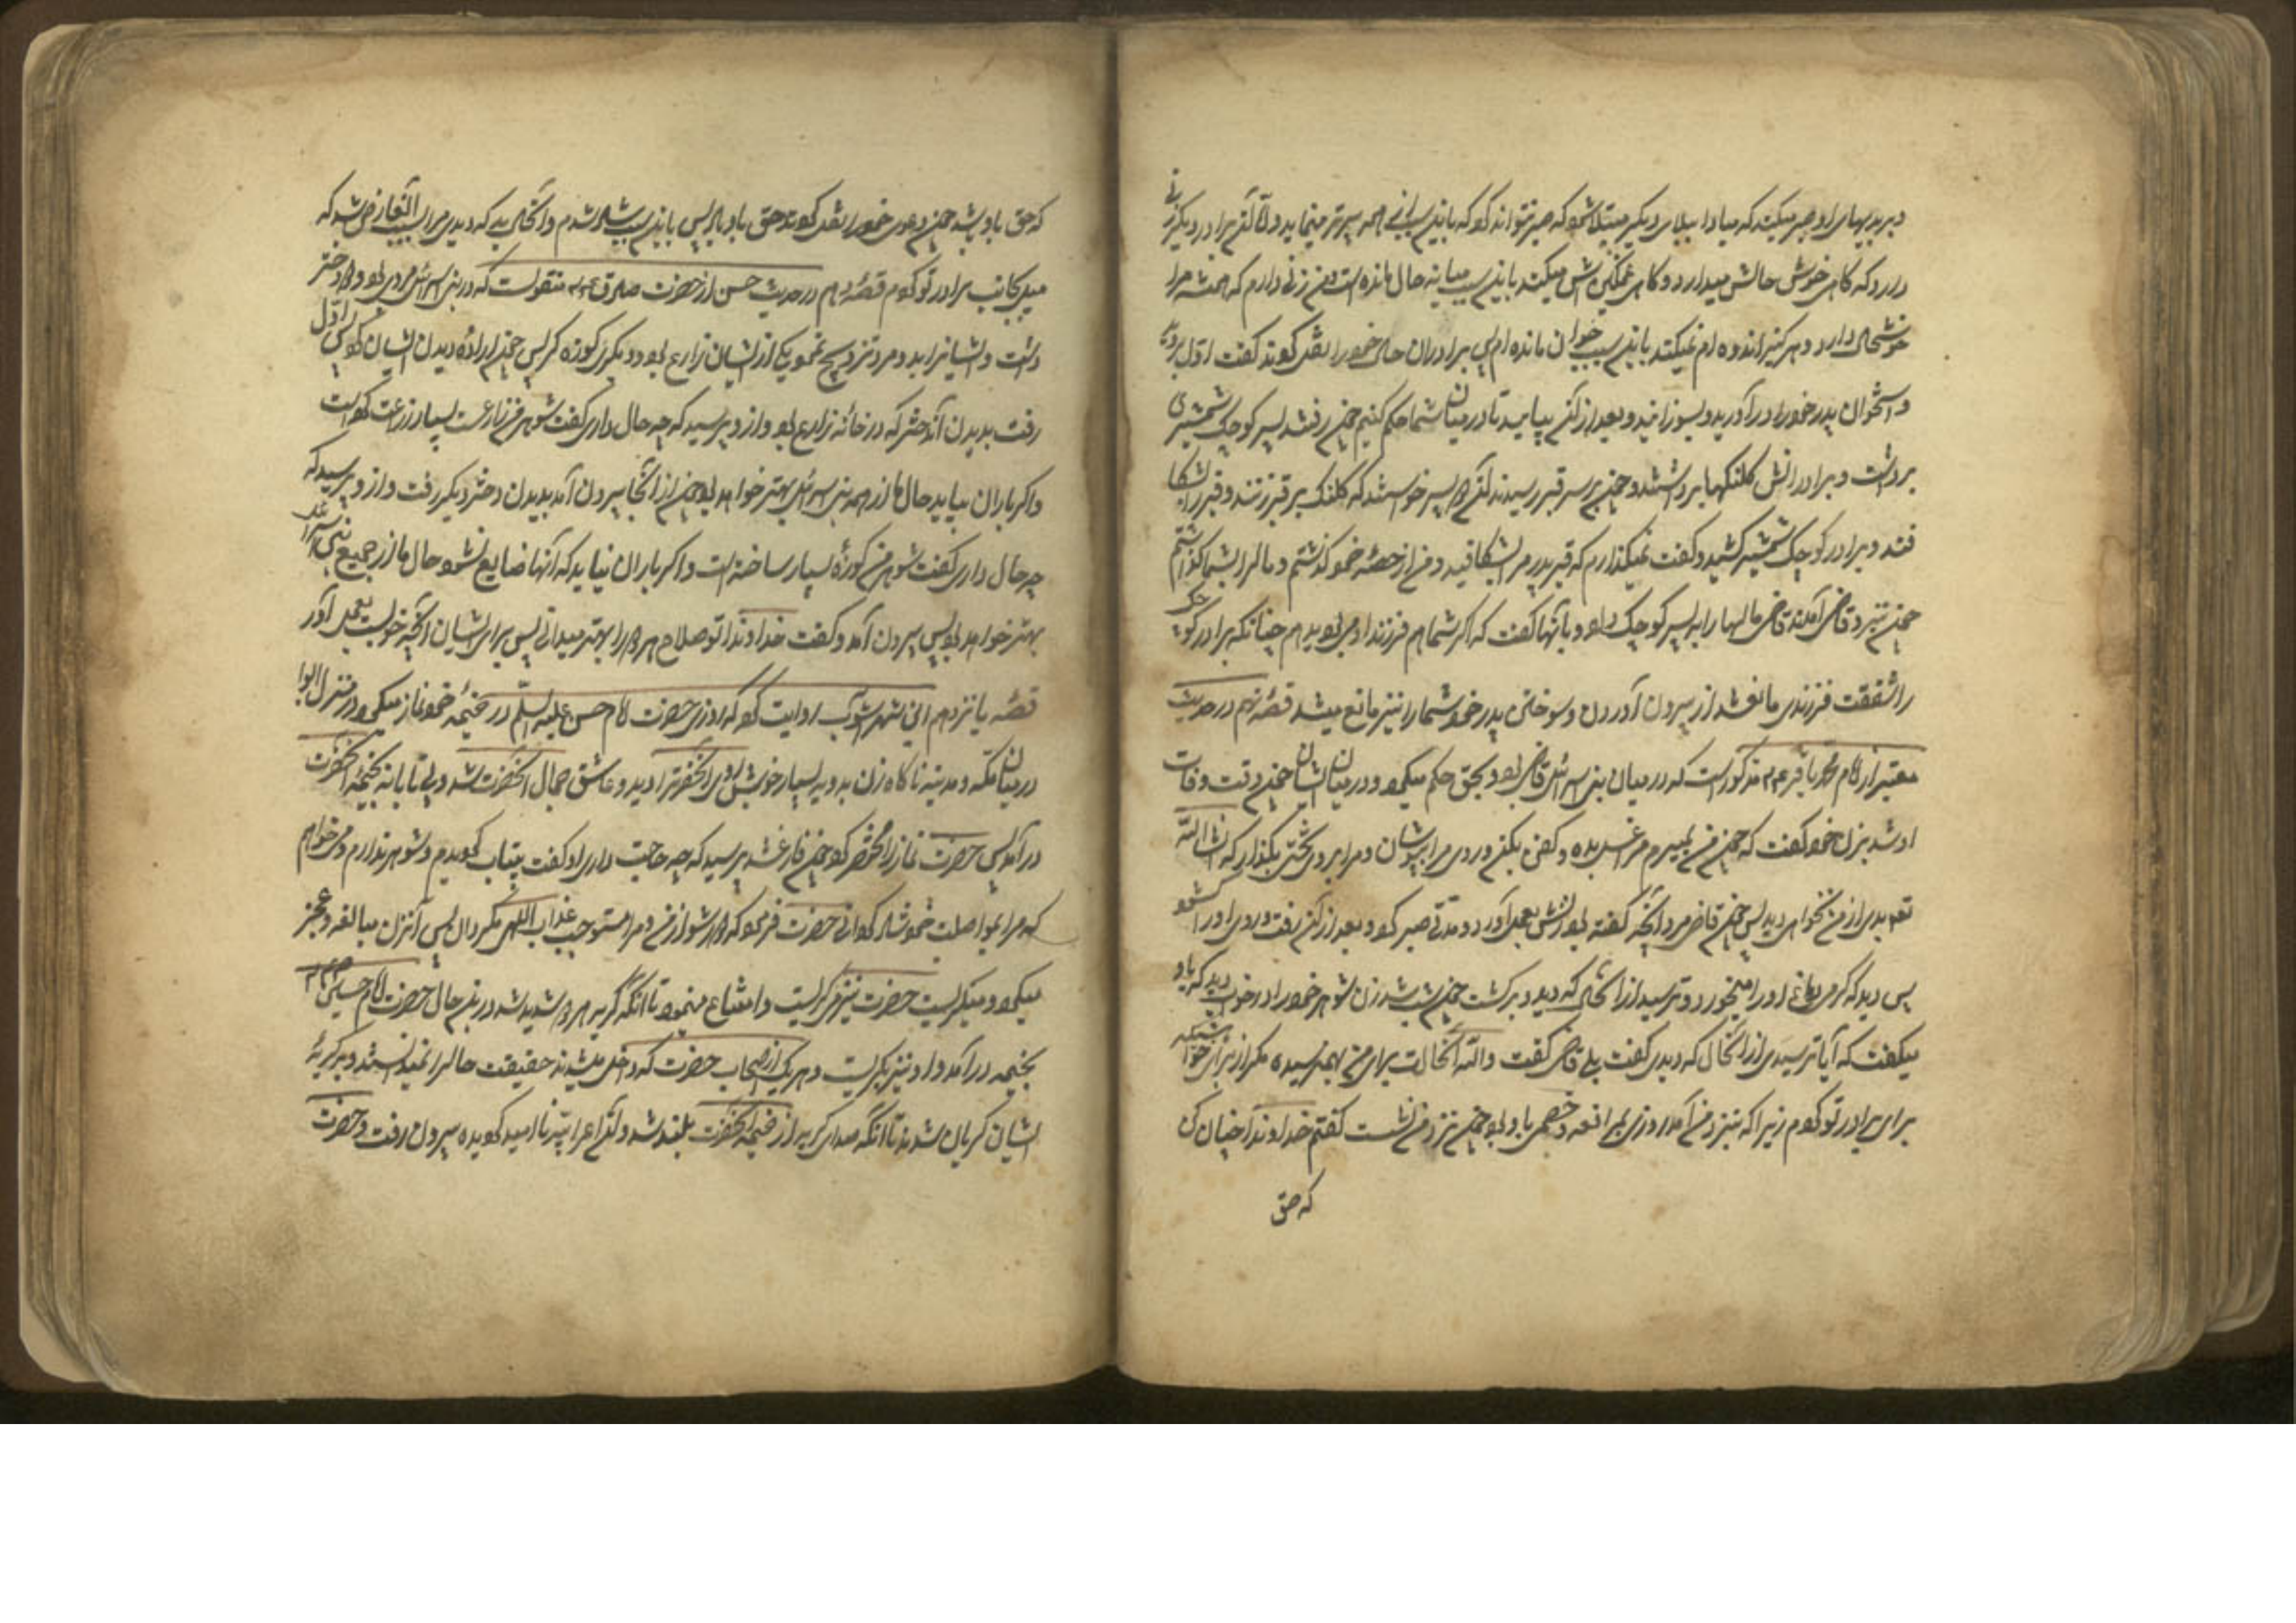 و بر بدیهای او صبر میکند که مبادا ببلای دیگر مبتلا شود که صبر نتواند کرد که باین سبب اندکی همه پیرتر مینماید و اما آن برادر دیگر زنی
دارد که گاهی خوش حالش میدارد و گاهی غمگینش میکند باین سبب میانه حال مانده است و من زنی دارم که همیشه مرا
خوشحال دارد و هرگز اندوه ام نمیکند باین سبب جوان مانده ام ای برادران حال خود را نقل کردند گفت اول بروید
و استخوان پدر خود را در آورید و بسوزانید و بعد از آن بیایید تا در میان شما حکم کنم چون رفتند پسر کوچک شمشیری
برداشت و برادرانش کلنگها برداشتند و چون بر سر قبر رسیدند آن دو پسر خواستند که کلنگ بر قبر زنند و قبر را بشکا
فند و برادر کوچک شمشیر کشید و گفت نمیگذارم که قبر پدر مرا بشکافید و من از حصه خود گذشتم و مال را بشما گذاشتم
چون نزد قاضی آمدند قاضی مالها را به پسر کوچک داد و بآنها گفت که اگر شما هم فرزند او می بودید هم چنانکه برادر کوچک
را شفقت فرزندی مانع شد از بیرون آوردن و سوختن پدر خود شما را نیز مانع میشد قصه نهم در حدیث
معتبر از امام محمد باقر ع م مذکور است که در میان بنی اسرائیل قاضی بود و بحق حکم میکرد و در میان ایشان چون وقت وفات
او شد بزن خود گفت که چون من بمیرم مرا غسل بده و کفن بکن و روی مرا بپوشان و مرا بر روی تختی بگذار که انشاء الله
تعالی بدی از من نخواهی دید پس چون قاضی مرد آنچه گفته بود زنش بعمل آورد و مدتی صبر کرد و بعد از آن رفت و روی او را گشود
پس دید که کرمی دماغ او را میخورد و ترسید از آنحال که دید و برگشت چون شب شد زن شوهر خود را در خواب دید که با او
میگفت که آیا ترسیدی از آنحال که دیدی گفت بلی قاضی گفت والله آنحالت برای من بهم نرسیده مگر از برای خواهشیکه
برای برادر تو کردم زیرا که نزد من آمد روزی بمرافعه و خصمی با او بود چون نزد من نشست گفتم خداوندا چنان کن
که حق
که حق با او باشد چون دعوی خود را نقل کردند حق با او بود پس باین سبب شاد شدم و آنحالی که دیدی مرا بسبب آنعارض شد که
میل بجانب برادر تو کردم قصه دهم در حدیث حسن از حضرت صادق ع م منقولست که در بنی اسرائیل مردی بود و دو دختر
داشت و ایشانرا بدو مرد تزویج نمود یکی از ایشان زارع بود و دیگری کوزه گر پس چون اراده دیدن ایشان کرد اول
رفت بدیدن آن دختر که در خانه زارع بود و از و پرسید که چه حال داری گفت شوهر من زراعت بسیار زراعت کرده است
و اگر باران بیاید حال ما از همه بنی اسرائیل بهتر خواهد بود چون از آنجا بیرون آمد بدیدن دختر دیگر رفت و از و پرسید که
چه حال داری گفت شوهر من کوزۀ بسیار ساخته است و اگر باران نیاید که آنها ضایع نشود حال ما از جمیع بنی اسرائیل
بهتر خواهد بود پس بیرون آمد و گفت خداوندا تو صلاح هر دو را بهتر میدانی پس برای ایشان آنچه خوبست بعمل آور
قصه یانزدهم ابن شهر آشوب روایت کرده که روزی حضرت امام حسن علیه السلام در خیمه خود نماز میکرد در منزل ابوا
در میان مکه و مدینه ناگاه زن بدویه بسیار خوش روی آنحضرترا دید و عاشق جمال آنحضرت شد و بی تابانه بخیمه آنحضرت
در آمد پس حضرت نماز را مختصر کرد چون فارغ شد پرسید که چه حاجت داری او گفت بیتاب گردیدم و شوهر ندارم و میخواهم
که مرا بمواصلت خود شاد گردانی حضرت فرمود که دور شو از من و مرا مستوجب عذاب الهی مگردان پس آنزن مبالغه و عجز
میکرد و میگریست حضرت نیز میگریست و امتناع مینمود تا آنکه گریه هر دو شدید شد در این حال حضرت امام حسین ع م
بخیمه در آمد و او نیز بگریست و هر یک از اصحاب حضرت که داخل میشدند حقیقت حال را نمیدانستند و بر گریۀ
ایشان گریان شدند تا آنکه صدای گریه از خیمه آنحضرت بلند شد و آن اعرابیه نا امید گردیده بیرون رفت و حضرت